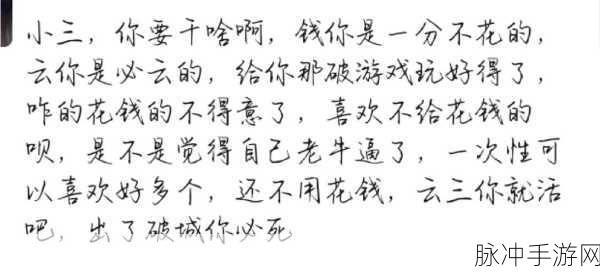 小三，你要干啥啊，钱你是一分不花的，
云你是必云的，给你那破游戏玩好得了，
咋的花钱的不得意了，喜欢不给花钱的
呗，是不是觉得自己老牛逼了，一次性可
以喜欢好多个，还不用花钱，云三你就活
吧，出了破城你必死
脉冲手游网